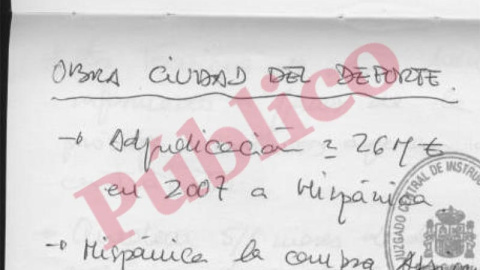 OBRA CIUDAD DEL DEPORTE.
→ Adjudicación ≈ 26 M €
en 2007 a Hispánica
→ Hispánica la compra
Público
JUZGADO CENTRAL DE INSTRUC